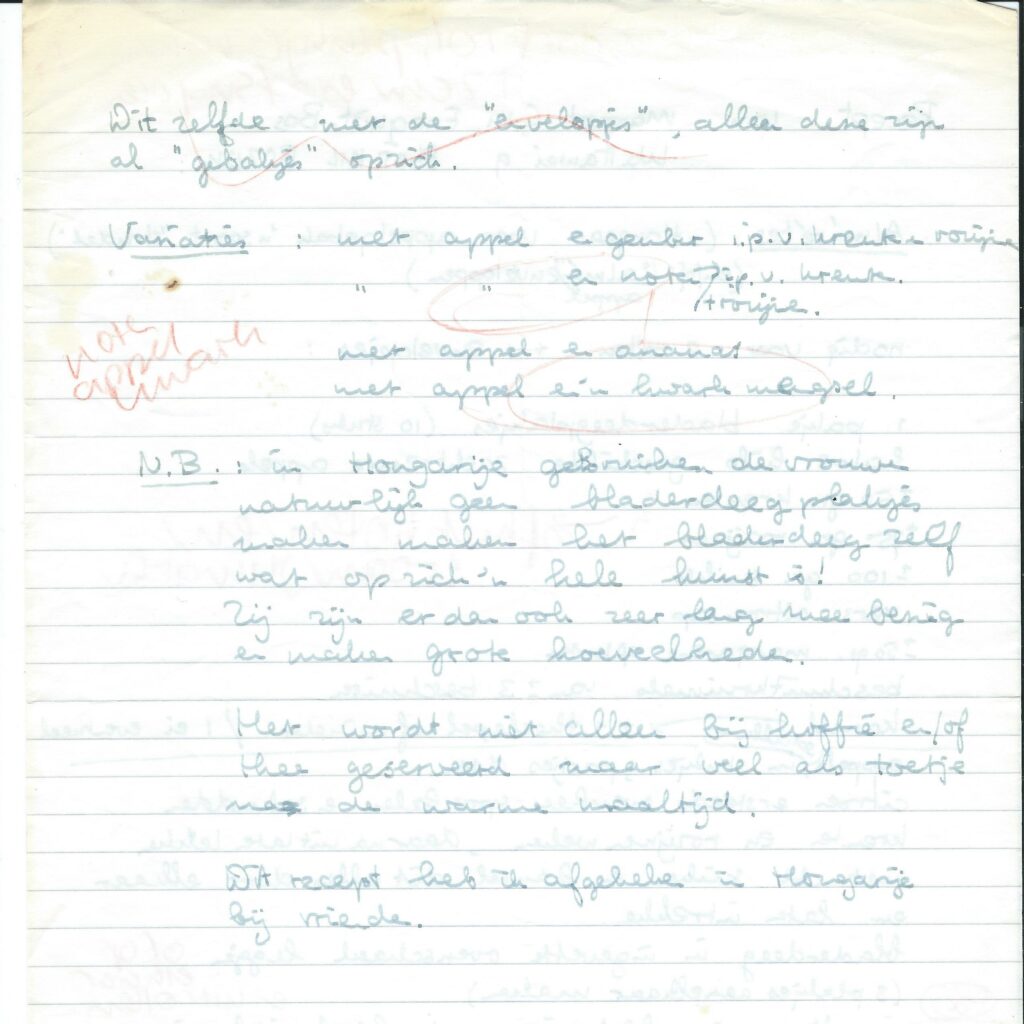 Dit zelfde met de "envelopjes", alleen deze zijn
al "gebakjes" opzich.
Variaties : met appel en gember i.p.v. krenten rozijne
" " en noten i.p.v. krente.
/rozijne.
met appel en ananas
met appel en 'n kwark mengsel.
note
appel
kwark
N.B. : in Hongarije gebruiken de vrouwe
natuurlijk geen bladerdeeg plakjes
maken maken het bladerdeeg zelf
wat op zich 'n hele kunst is!
Zij zijn er dan ook zeer lang mee bezig
en maken grote hoeveelhede.
Het wordt niet alleen bij koffie en/of
thee geserveerd maar veel als toetje
na de warme maaltijd.
Dit recept heb ik afgekeken in Hongarije
bij vriende.